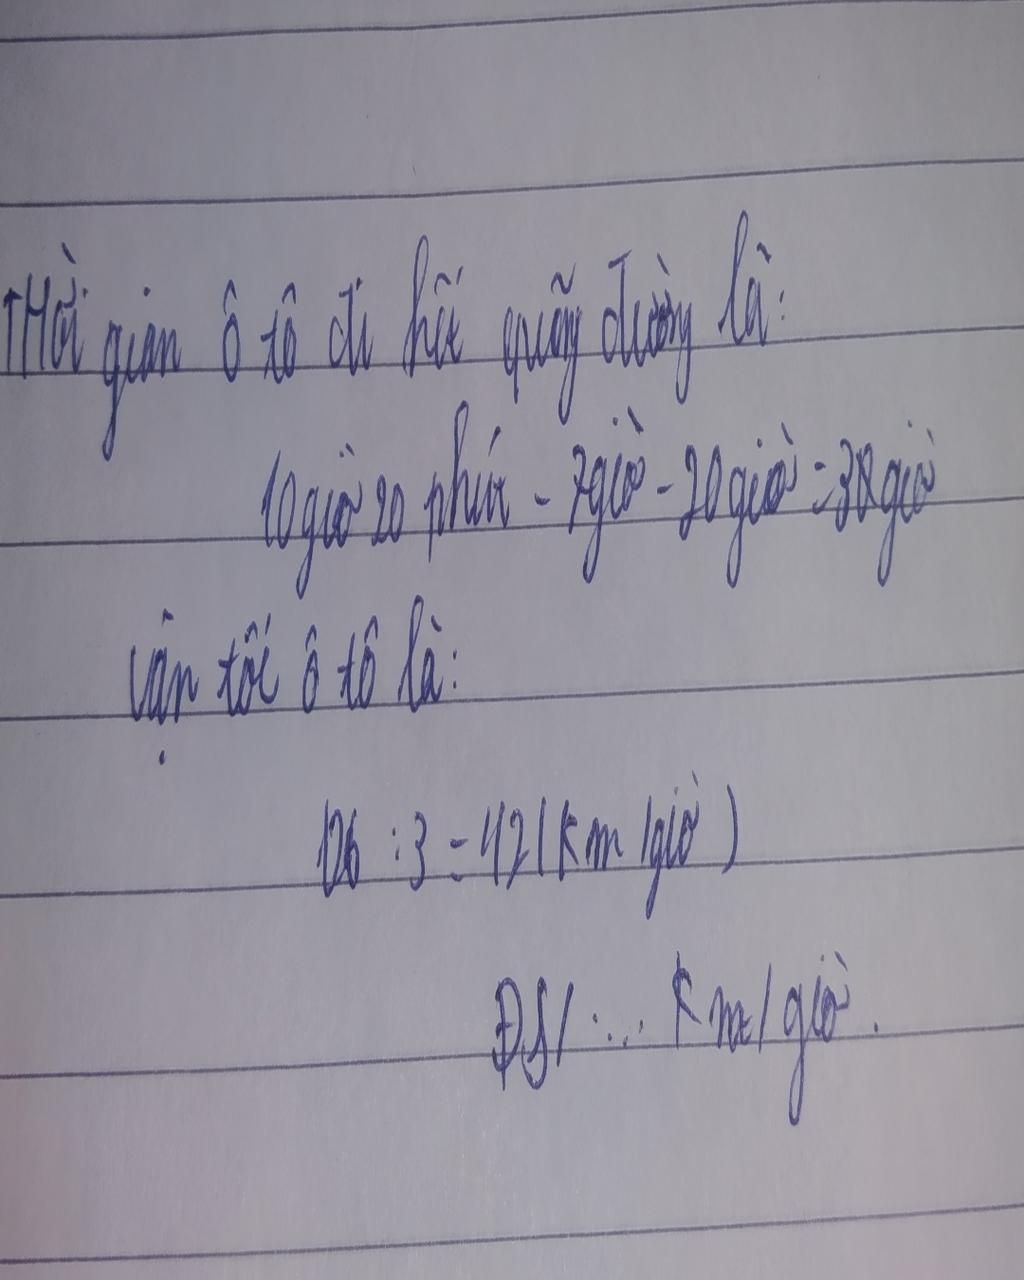 Thời gian ô tô đi hết quãng đường là:
10 giờ 20 phút - 7 giờ - 20 giờ = 38 giờ
Vận tốc ô tô là:
126 : 3 = 42 (km/giờ)
ĐS/ ... km/giờ.